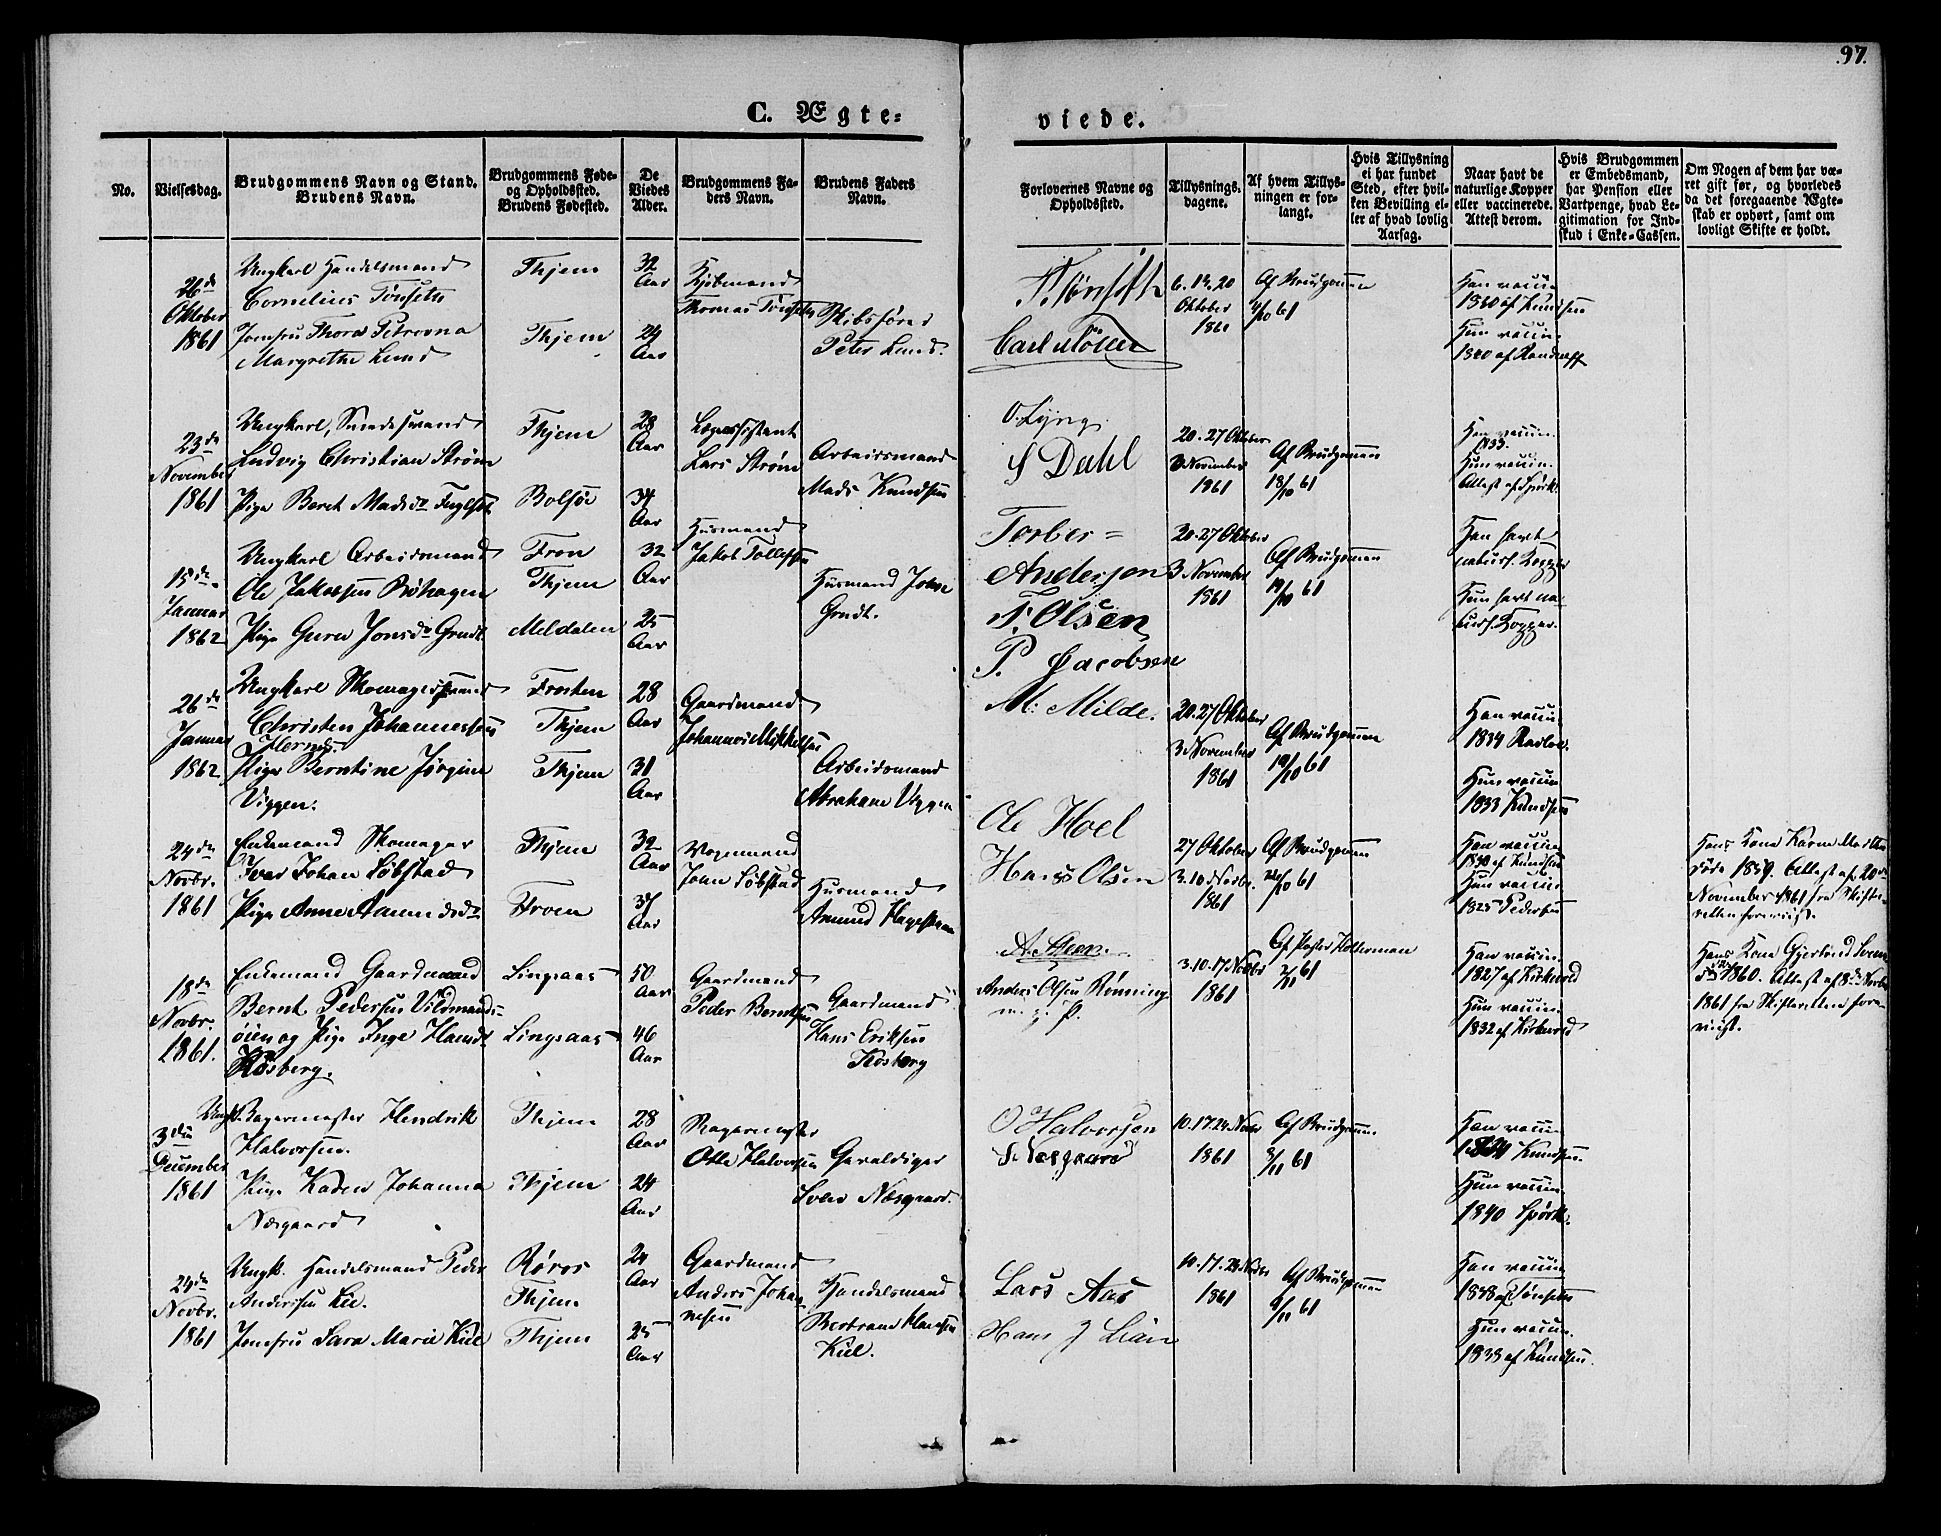 97.
C. Ægte=
viede.
No.
Vielsesdag.
Brudgommens Navn og Stand.
Brudens Navn.
Brudgommens Føde-
og Opholdssted.
Brudens Fødested.
De
Viedes
Alder.
Brudgommens Fa-
ders Navn.
Brudens Faders
Navn.
Forlovernes Navne og
Opholdssted.
Tillysnings-
dagene.
Af hvem Tillys-
ningen er for-
langt.
Hvis Tillysning
ei har fundet
Sted, efter hvil-
ken Bevilling el-
ler af hvad lovlig
Aarsag.
Naar havt de
naturlige Kopper
eller vaccinerede.
Attest derom.
Hvis Brudgommen
er Embedsmand,
har Pension eller
Vartpenge, hvad Le-
gitimation for Ind-
skud i Enke-Cassen.
Om Nogen af dem har væ-
ret gift før, og hvorledes
da det foregaaende Ægte-
skab er ophørt, samt om
lovligt Skifte er holdt.
26de
Oktober
1861
Ungkarl Handelsmand
Cornelius Tønseth
Jomfru Thora Petrovna
Margrethe Lund
Thjem
Thjem
32
Aar
24
Aar
Kjøbmand
Thomas Tønseth
Skibsfører
Peter Lund.
T. Tønseth
Carl
6. 13. 20
Oktober
1861
Af Brudgommen
Han vaccin.
1830 af Knudsen
Hun vaccin.
1840 af
23de
November
1861
Ungkarl, Smedesvend
Ludvig Christian Strøm
Pige Beret Madsdr
Thjem
Bolsø
28
Aar
34
Aar
Lars Strøm
Arbeidsmand
Mads Knudsen
O. Lyng
S Dahl
20. 27 Oktober
3 November
1861
Af Brudgommen
18/10 61
Han vaccin.
1833.
Hun vaccin.
Attest af Spørck.
15de
Januar
1862
Ungkarl Arbeidsmand
Ole Jakobsen
Pige Guru Jonsdr Grndt.
Fron
Thjem
Meldalen
32
Aar
25
Aar
Husmand
Jakob Tollefsen
Husmand John
Grndt.
Torber=
Andersen
T. Olsen
P. Jacobsen
20. 27 Oktober
3 November
1861
Af Brudgommen
19/10 61
Han havt
naturl. Kopper
Hun havt na-
turl. Kopper.
26de
Januar
1862
Ungkarl Skomagersvend
Christen Johannessen
Pige Berntine Jørgine
Viggen.
Frosten
Thjem
Thjem
28
Aar
31
Aar
Gaardmand
Johannes Mikkelsen
Arbeidsmand
Abraham Viggen
M. Milde.
Ole Hoel
20. 27 Oktober
3 November
1861
Af Brudgommen
19/10 61
Han vaccin.
1834
Hun vaccin.
1833 Knudsen
24de
Novbr.
1861
Enkemand Skomager
Iver Johan Løbstad
Pige Anne Amundsdr
Thjem
Froen
32
Aar
37
Aar
Vognmand
John Løbstad
Husmand
Amund
Hans Olsen
27 Oktober
3. 10 Novbr.
1861
Af Brudgommen
Han vaccin.
1830 af Knudsen
Hun vaccin.
1825 Pedersen
Hans Kone Karen
døde 1859. Attest af 20de
November 1861 fra Skifte-
retten forevist.
18de
Novbr.
1861.
Enkemand Gaardmand
Bernt Pedersen Vildmands-
øien og Pige Inge Hansdr
Kosberg.
Singsaas
Singsaas
50
Aar
46
Aar
Gaardmand
Peder Berntsen
Gaardmand
Hans Eriksen
Kosberg
A. Steen.
Anders Olsen Rønning
m. p. P.
3. 10. 17 Novbr
1861
Af Pastor Hollerman
2/11 61
Han vaccin.
1827 af Kirkvold
Hun vaccin.
1832 af Kirkvold
1860. Attest af 8de Novbr
1861 fra Skifteretten fore-
vist.
3die
December
1861
Ungk. Bagermester Hendrik
Halvorsen.
Pige Karen Johanna
Næsgaard
Thjem
Thjem
28
Aar
24
Aar
Bagermester
Otto Halvorsen
Gevaldiger
Sven Næsgaard.
O Halvorsen
S. Næsgaard
10. 17. 24 Novbr
1861
Af Brudgommen
8/11 61
Han vaccin.
1834 Knudsen.
Hun vaccin.
1840 Spørck.
24de
Novbr.
1861
Ungk. Handelsmand Peder
Andersen Lie.
Jomfru Sara Marie Kiil
Røros
Thjem
Thjem
24
Aar
25
Aar
Gaardmand
Anders Johan-
nesen
Handelsmand
Bertram Hansen
Kiil.
Lars Aas
Hans J Lian
10. 17. 24 Novbr
1861
Af Brudgommen
8/11 61
Han vaccin.
1838 af Tønseth
Hun vaccin.
1838 af Knudsen.